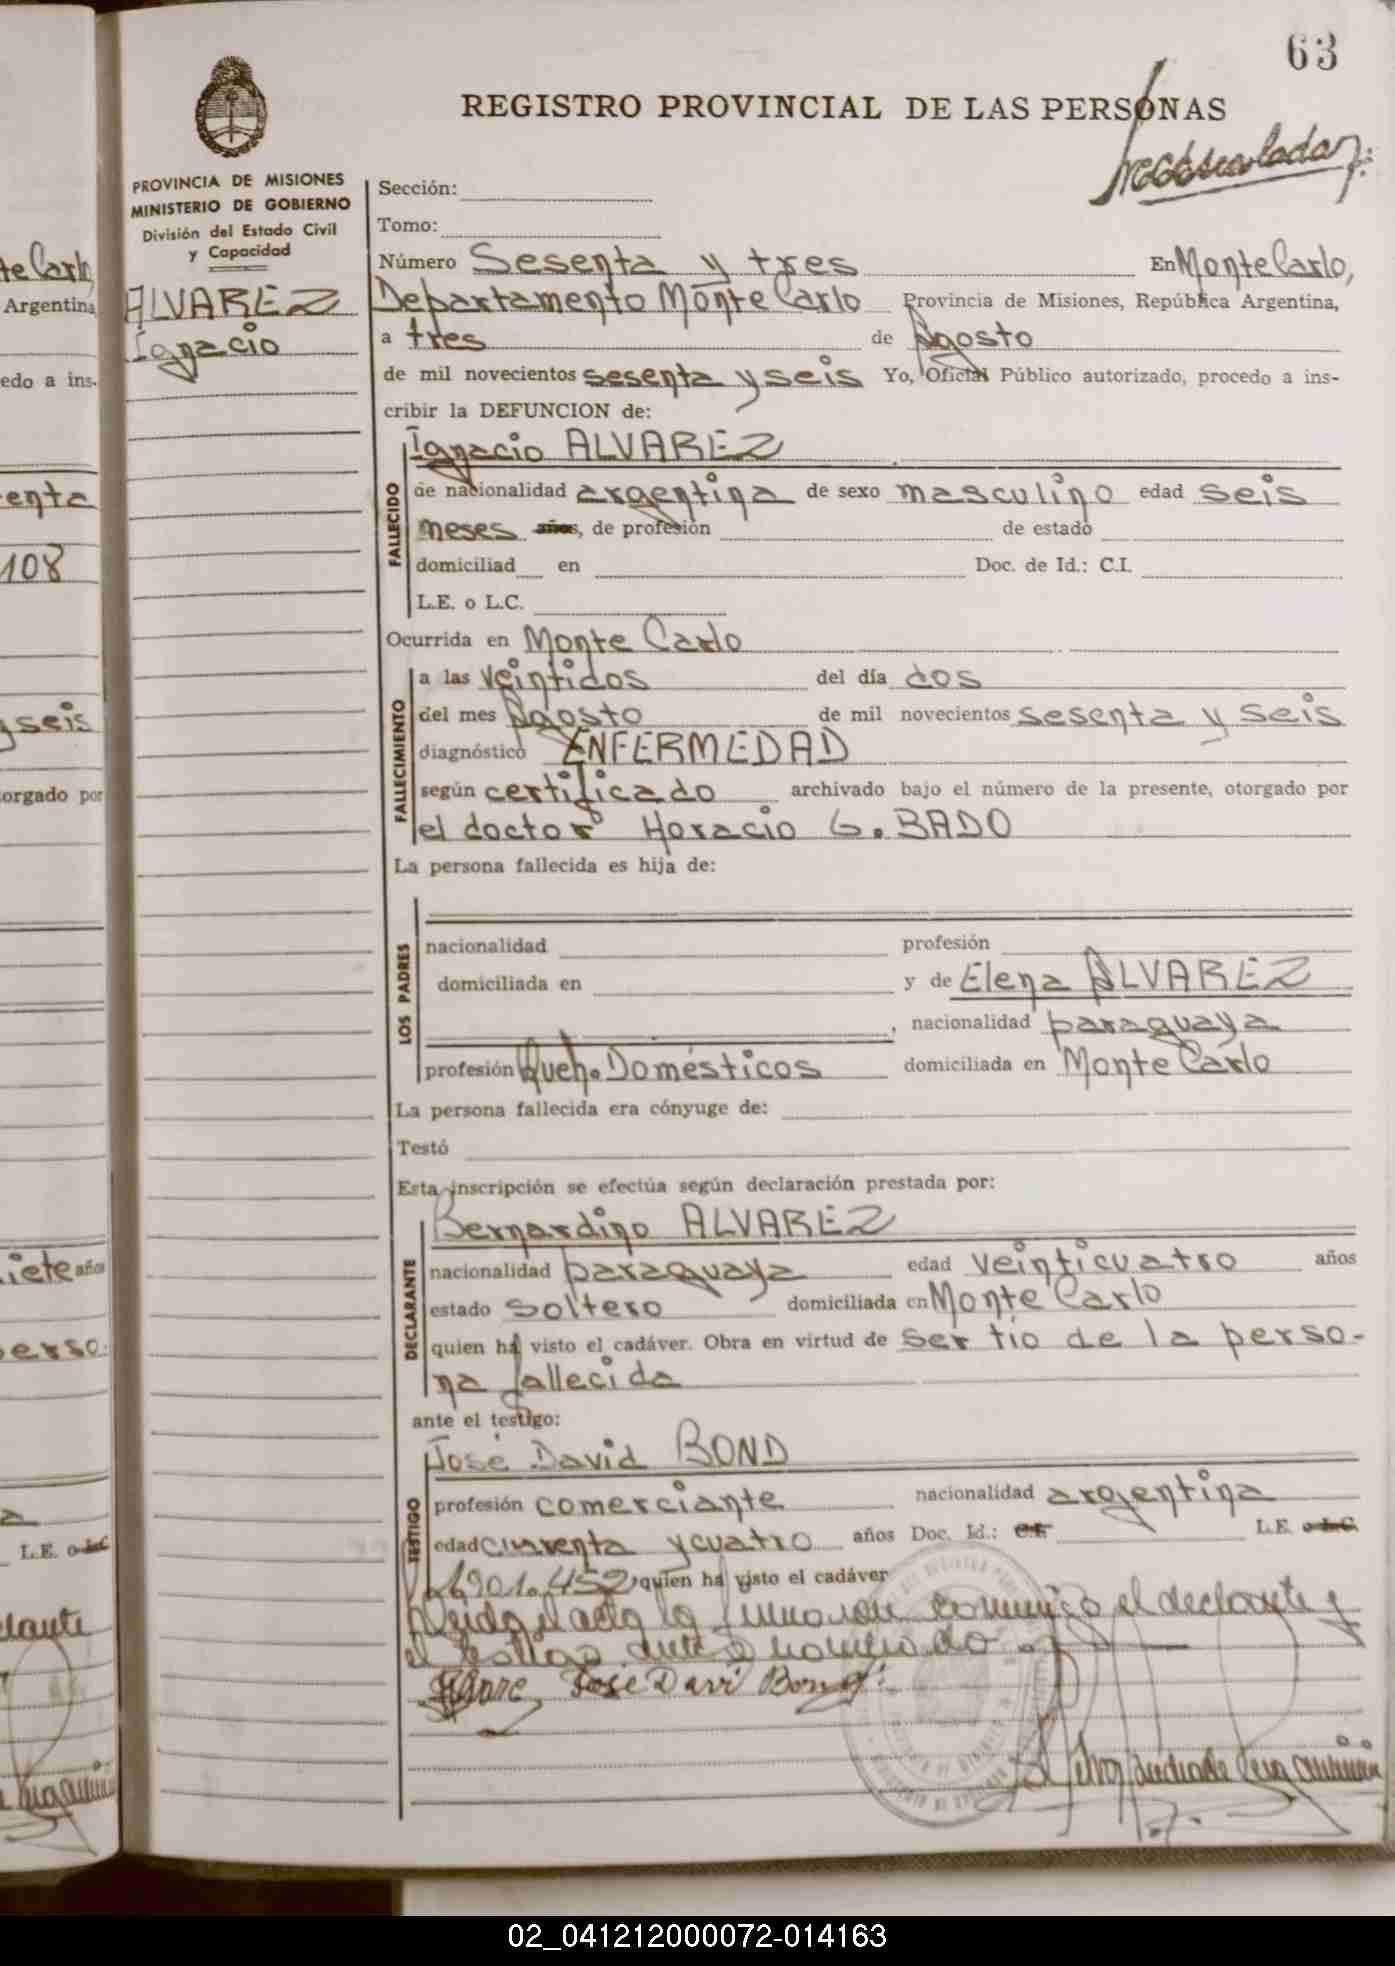 63
REGISTRO PROVINCIAL DE LAS PERSONAS
PROVINCIA DE MISIONES
MINISTERIO DE GOBIERNO
División del Estado Civil
y Capacidad
ALVAREZ
Ignacio
Sección:
Tomo:
Número Sesenta y tres En Monte Carlo,
Departamento Monte Carlo Provincia de Misiones, República Argentina,
a tres de Agosto
de mil novecientos sesenta y seis Yo, Oficial Público autorizado, procedo a ins-
cribir la DEFUNCION de:
FALLECIDO
Ignacio ALVAREZ
de nacionalidad argentina de sexo masculino edad seis
meses años, de profesión de estado
domiciliad en Doc. de Id.: C.I.
L.E. o L.C.
Ocurrida en Monte Carlo
FALLECIMIENTO
a las veintidos del día dos
del mes Agosto de mil novecientos sesenta y seis
diagnóstico ENFERMEDAD
según certificado archivado bajo el número de la presente, otorgado por
el doctor Horacio G. BADO
La persona fallecida es hija de:
LOS PADRES
nacionalidad profesión
domiciliada en y de Elena ALVAREZ
, nacionalidad paraguaya
profesión Queh. Domésticos domiciliada en Monte Carlo
La persona fallecida era cónyuge de:
Testó
Esta inscripción se efectúa según declaración prestada por:
DECLARANTE
Bernardino ALVAREZ
nacionalidad paraguaya edad veinticuatro años
estado soltero domiciliada en Monte Carlo
quien ha visto el cadáver. Obra en virtud de ser tío de la perso-
na fallecida
ante el testigo:
TESTIGO
José David BOND
profesión comerciante nacionalidad argentina
edad cuarenta y cuatro años Doc. Id.: C.I. L.E. o L.C.
quien ha visto el cadáver
el acta la conmigo el declarante y
el testigo
José Davi Bond
te Carlo,
Argentina,
edo a ins-
enta
108
y seis
torgado por
iete años
perso-
a
L.E. o L.C.
larante
02_041212000072-014163